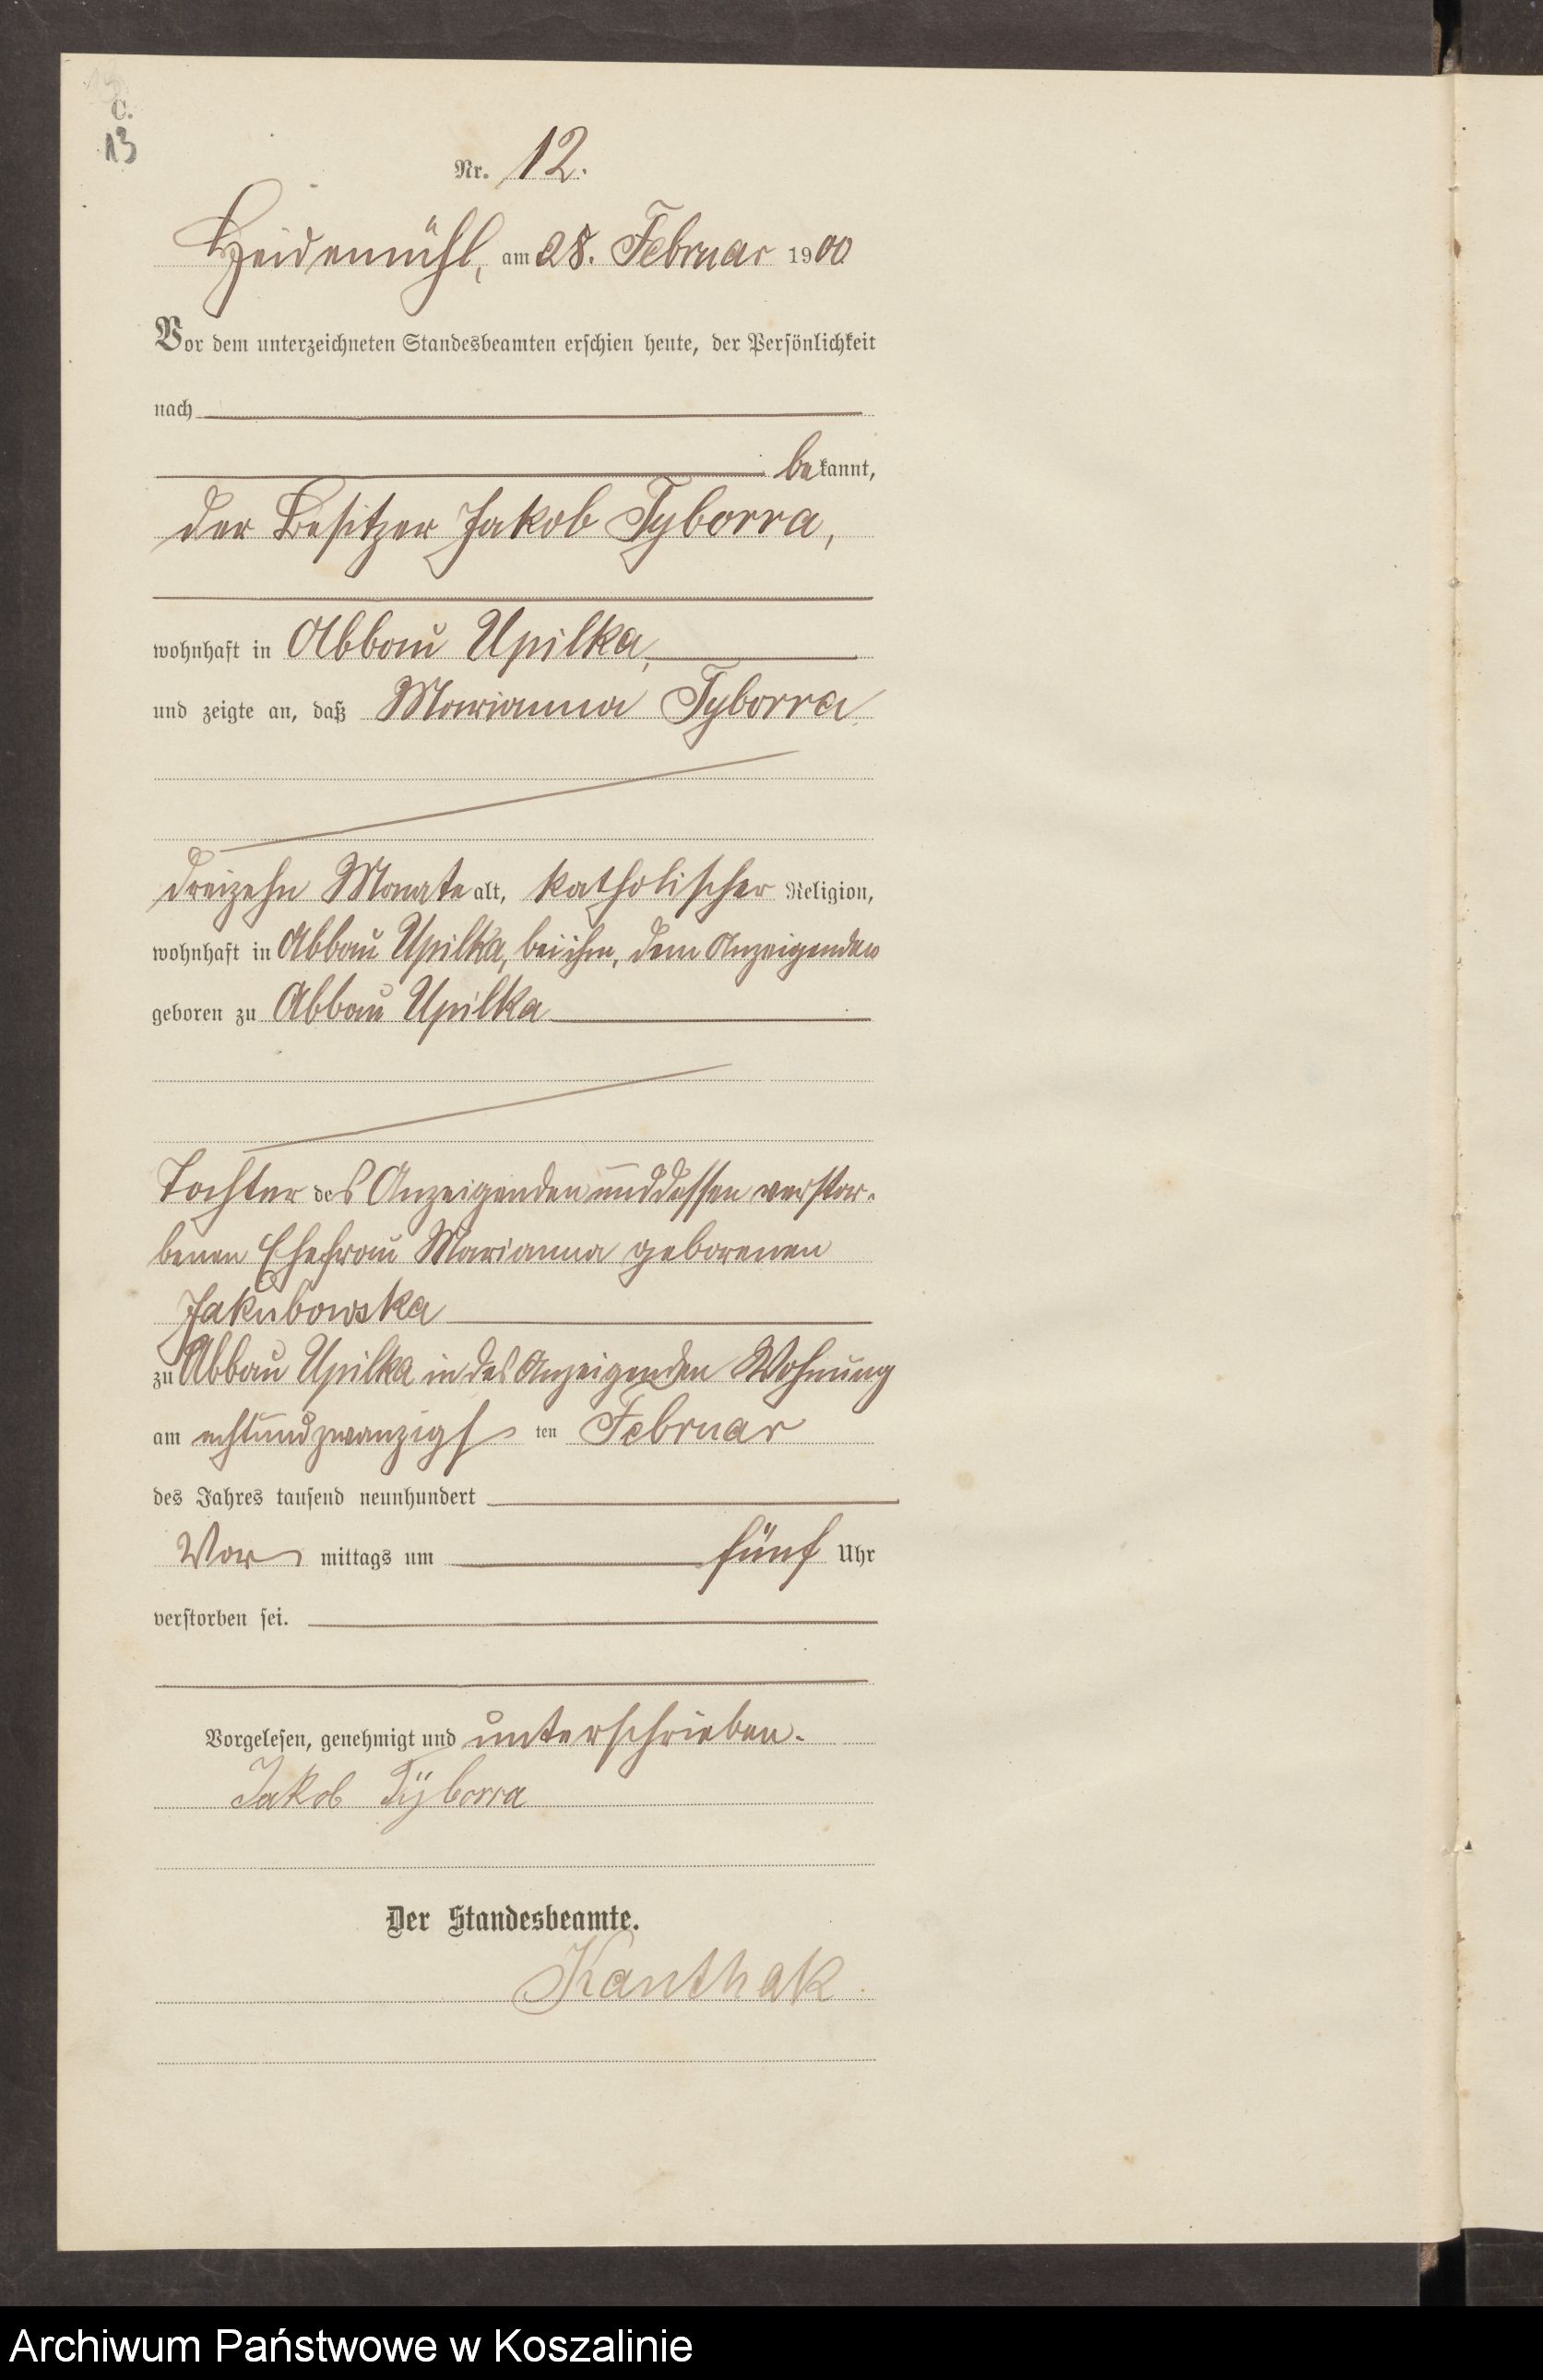 C.
13
Nr. 12.
Heidemühl, am 28. Februar 1900
Vor dem unterzeichneten Standesbeamten erschien heute, der Persönlichkeit
nach
bekannt,
der Besitzer Jakob Tyborra,
wohnhaft in Abbau Upilka,
und zeigte an, daß Marianna Tyborra
dreizehn Monate alt, katholischer Religion,
wohnhaft in Abbau Upilka, bei ihm, dem Anzeigenden
geboren zu Abbau Upilka
Tochter des Anzeigenden und dessen verstor-
benen Ehefrau Marianna geborenen
Jakubowska
zu Abbau Upilka in des Anzeigenden Wohnung
am achtundzwanzigsten Februar
des Jahres tausend neunhundert
Vormittags um fünf Uhr
verstorben sei.
Vorgelesen, genehmigt und unterschrieben.
Jakob Tÿborra
Der Standesbeamte.
Kanthak.
Archiwum Państwowe w Koszalinie